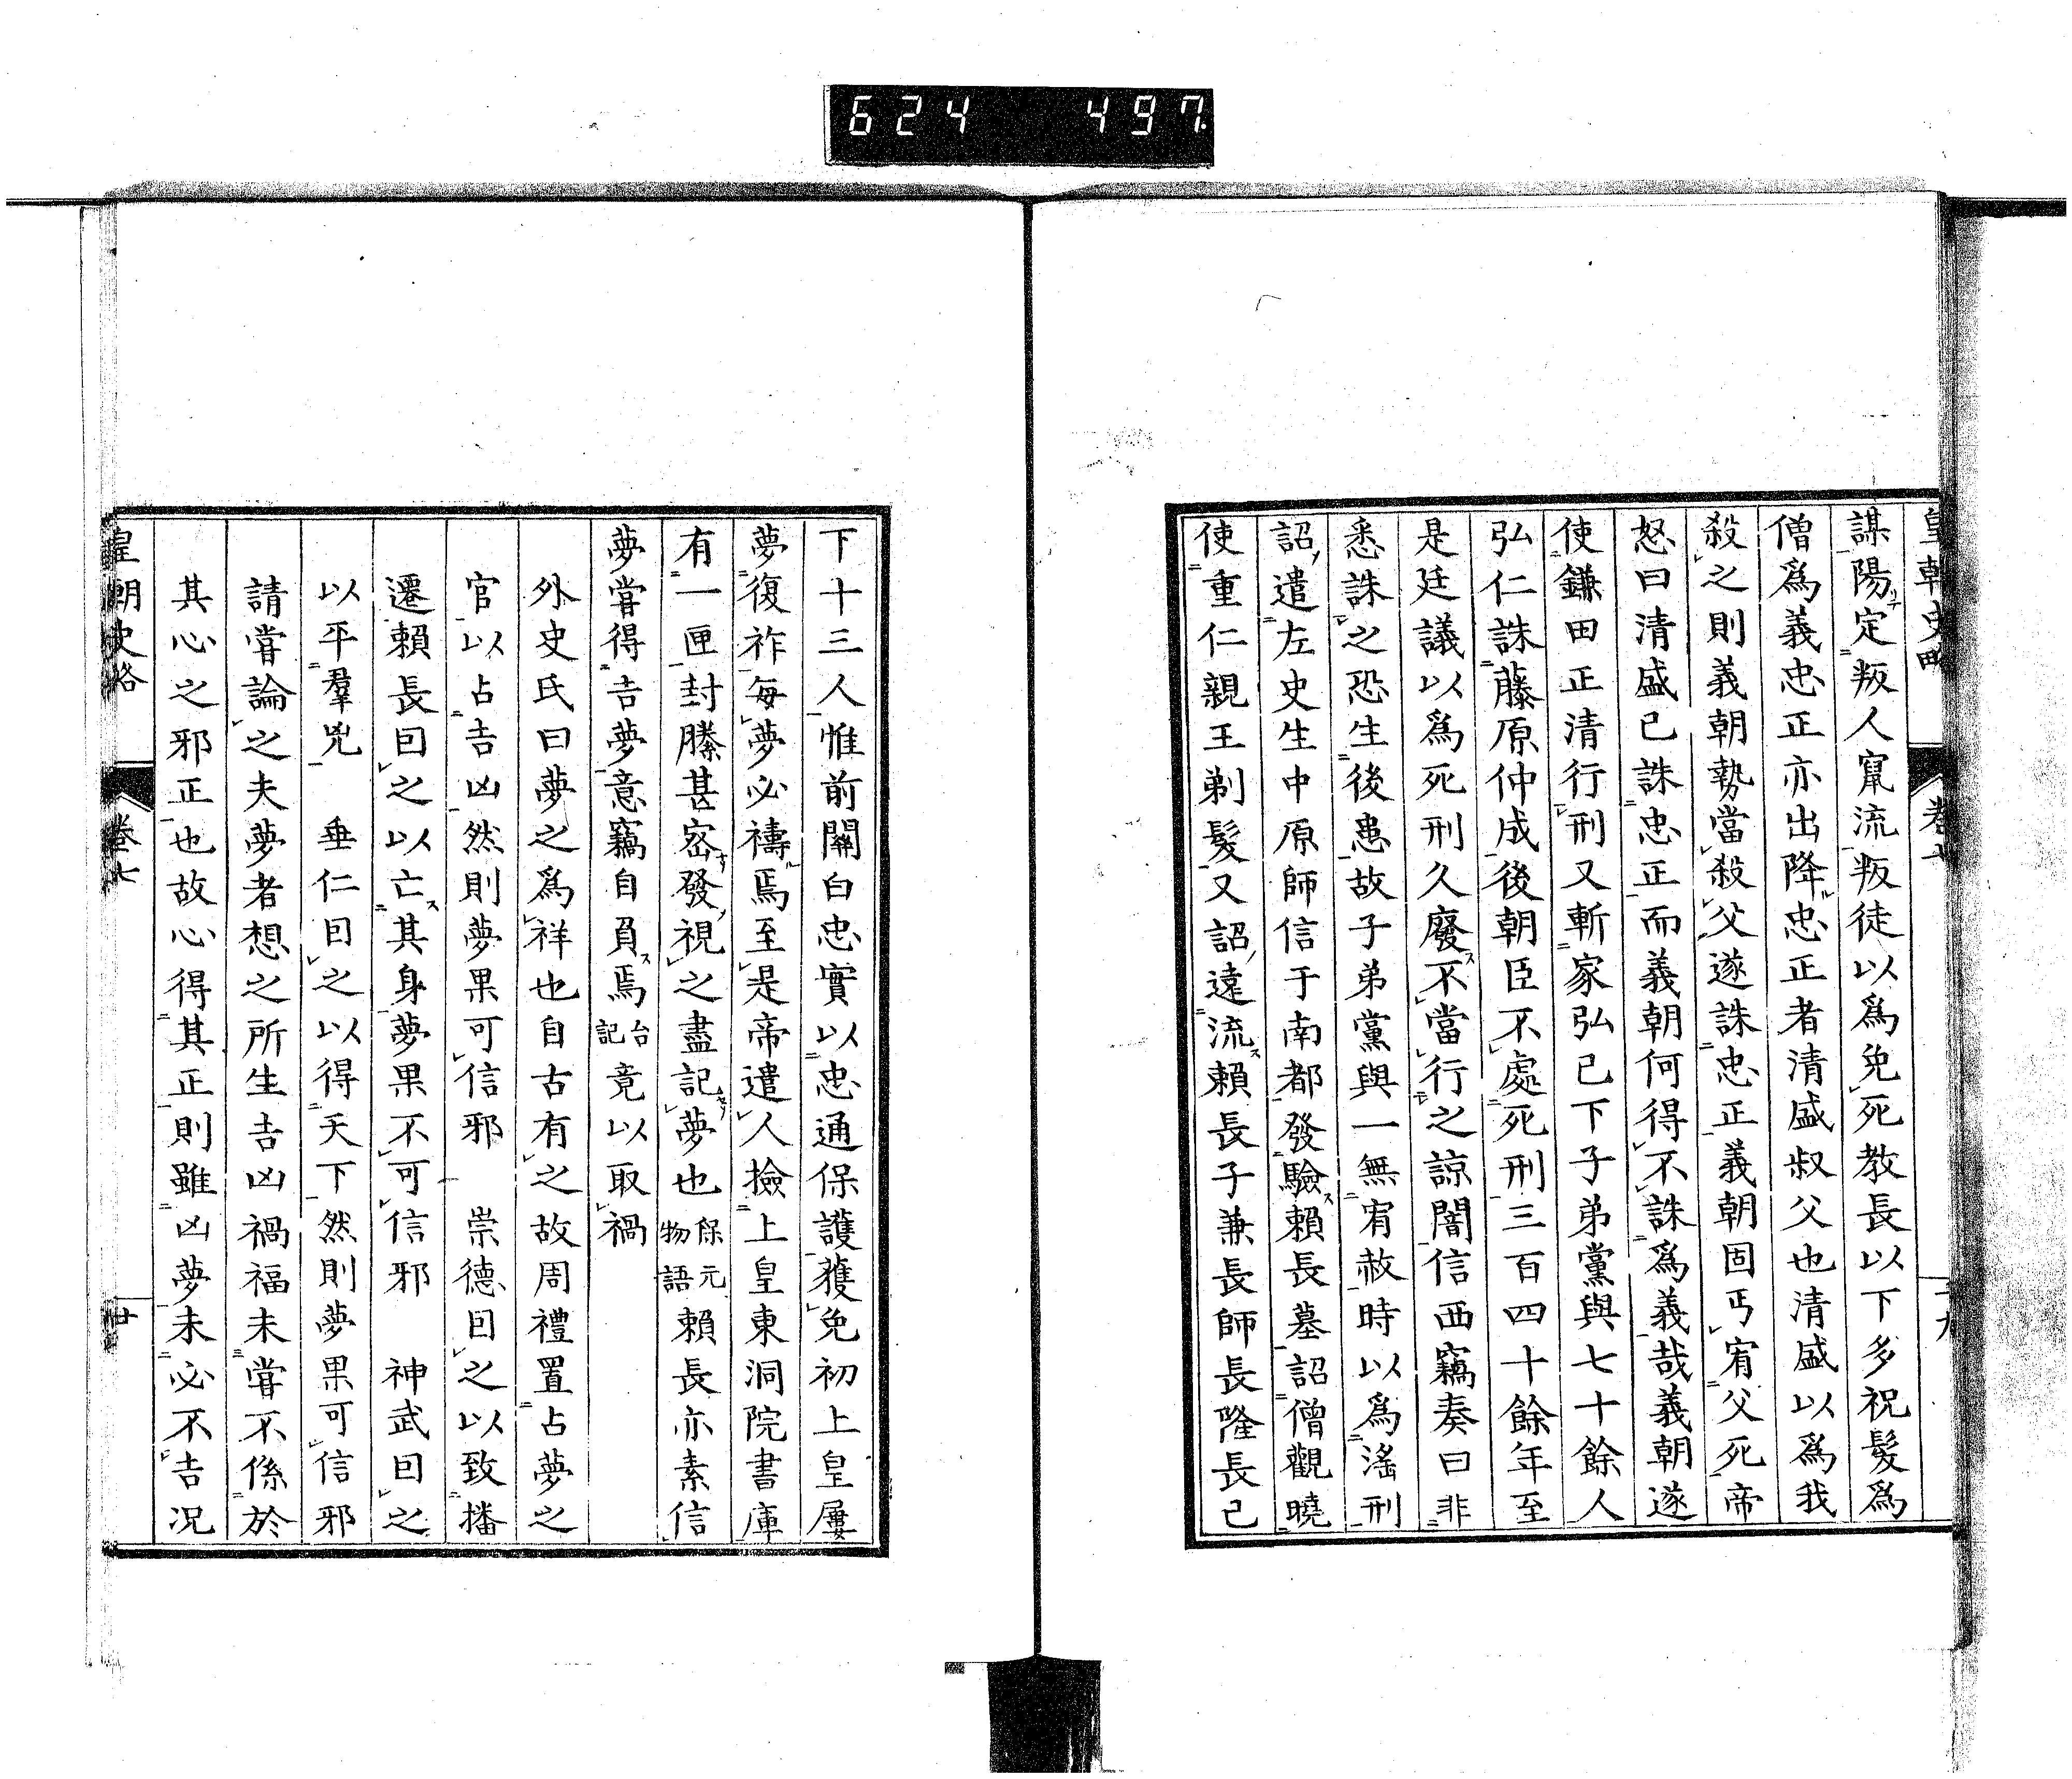 624 497.
皇朝史略 卷七 十九
謀陽定叛人竄流叛徒以爲免死教長以下多祝髮爲
僧爲義忠正亦出降忠正者清盛叔父也清盛以爲我
殺之則義朝勢當殺父遂誅忠正義朝固丐宥父死帝
怒曰清盛已誅忠正而義朝何得不誅爲義哉義朝遂
使鎌田正清行刑又斬家弘已下子弟黨與七十餘人
弘仁誅藤原仲成後朝臣不處死刑三百四十餘年至
是廷議以爲死刑久廢不當行之諒闇信西竊奏曰非
悉誅之恐生後患故子弟黨與一無宥赦時以爲濫刑
詔遣左史生中原師信于南都發驗賴長墓詔僧觀曉
使重仁親王剃髮又詔遠流賴長子兼長師長隆長已
下十三人惟前關白忠實以忠通保護獲免初上皇屢
夢復祚每夢必禱焉至是帝遣人撿上皇東洞院書庫
有一匣封縢甚密發視之盡記夢也保元物語賴長亦素信
夢嘗得吉夢意竊自負焉台記竟以取禍
外史氏曰夢之爲祥也自古有之故周禮置占夢之
官以占吉凶然則夢果可信邪 崇德因之以致播
遷賴長因之以亡其身夢果不可信邪 神武因之
以平羣兇 垂仁因之以得天下然則夢果可信邪
請嘗論之夫夢者想之所生吉凶禍福未嘗不係於
其心之邪正也故心得其正則雖凶夢未必不吉況
皇朝史略 卷七 廿